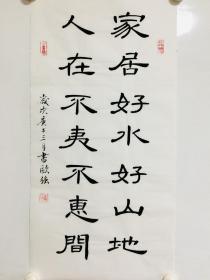 家居好水好山地
人在不夷不惠間
歲次庚子三月書歐強